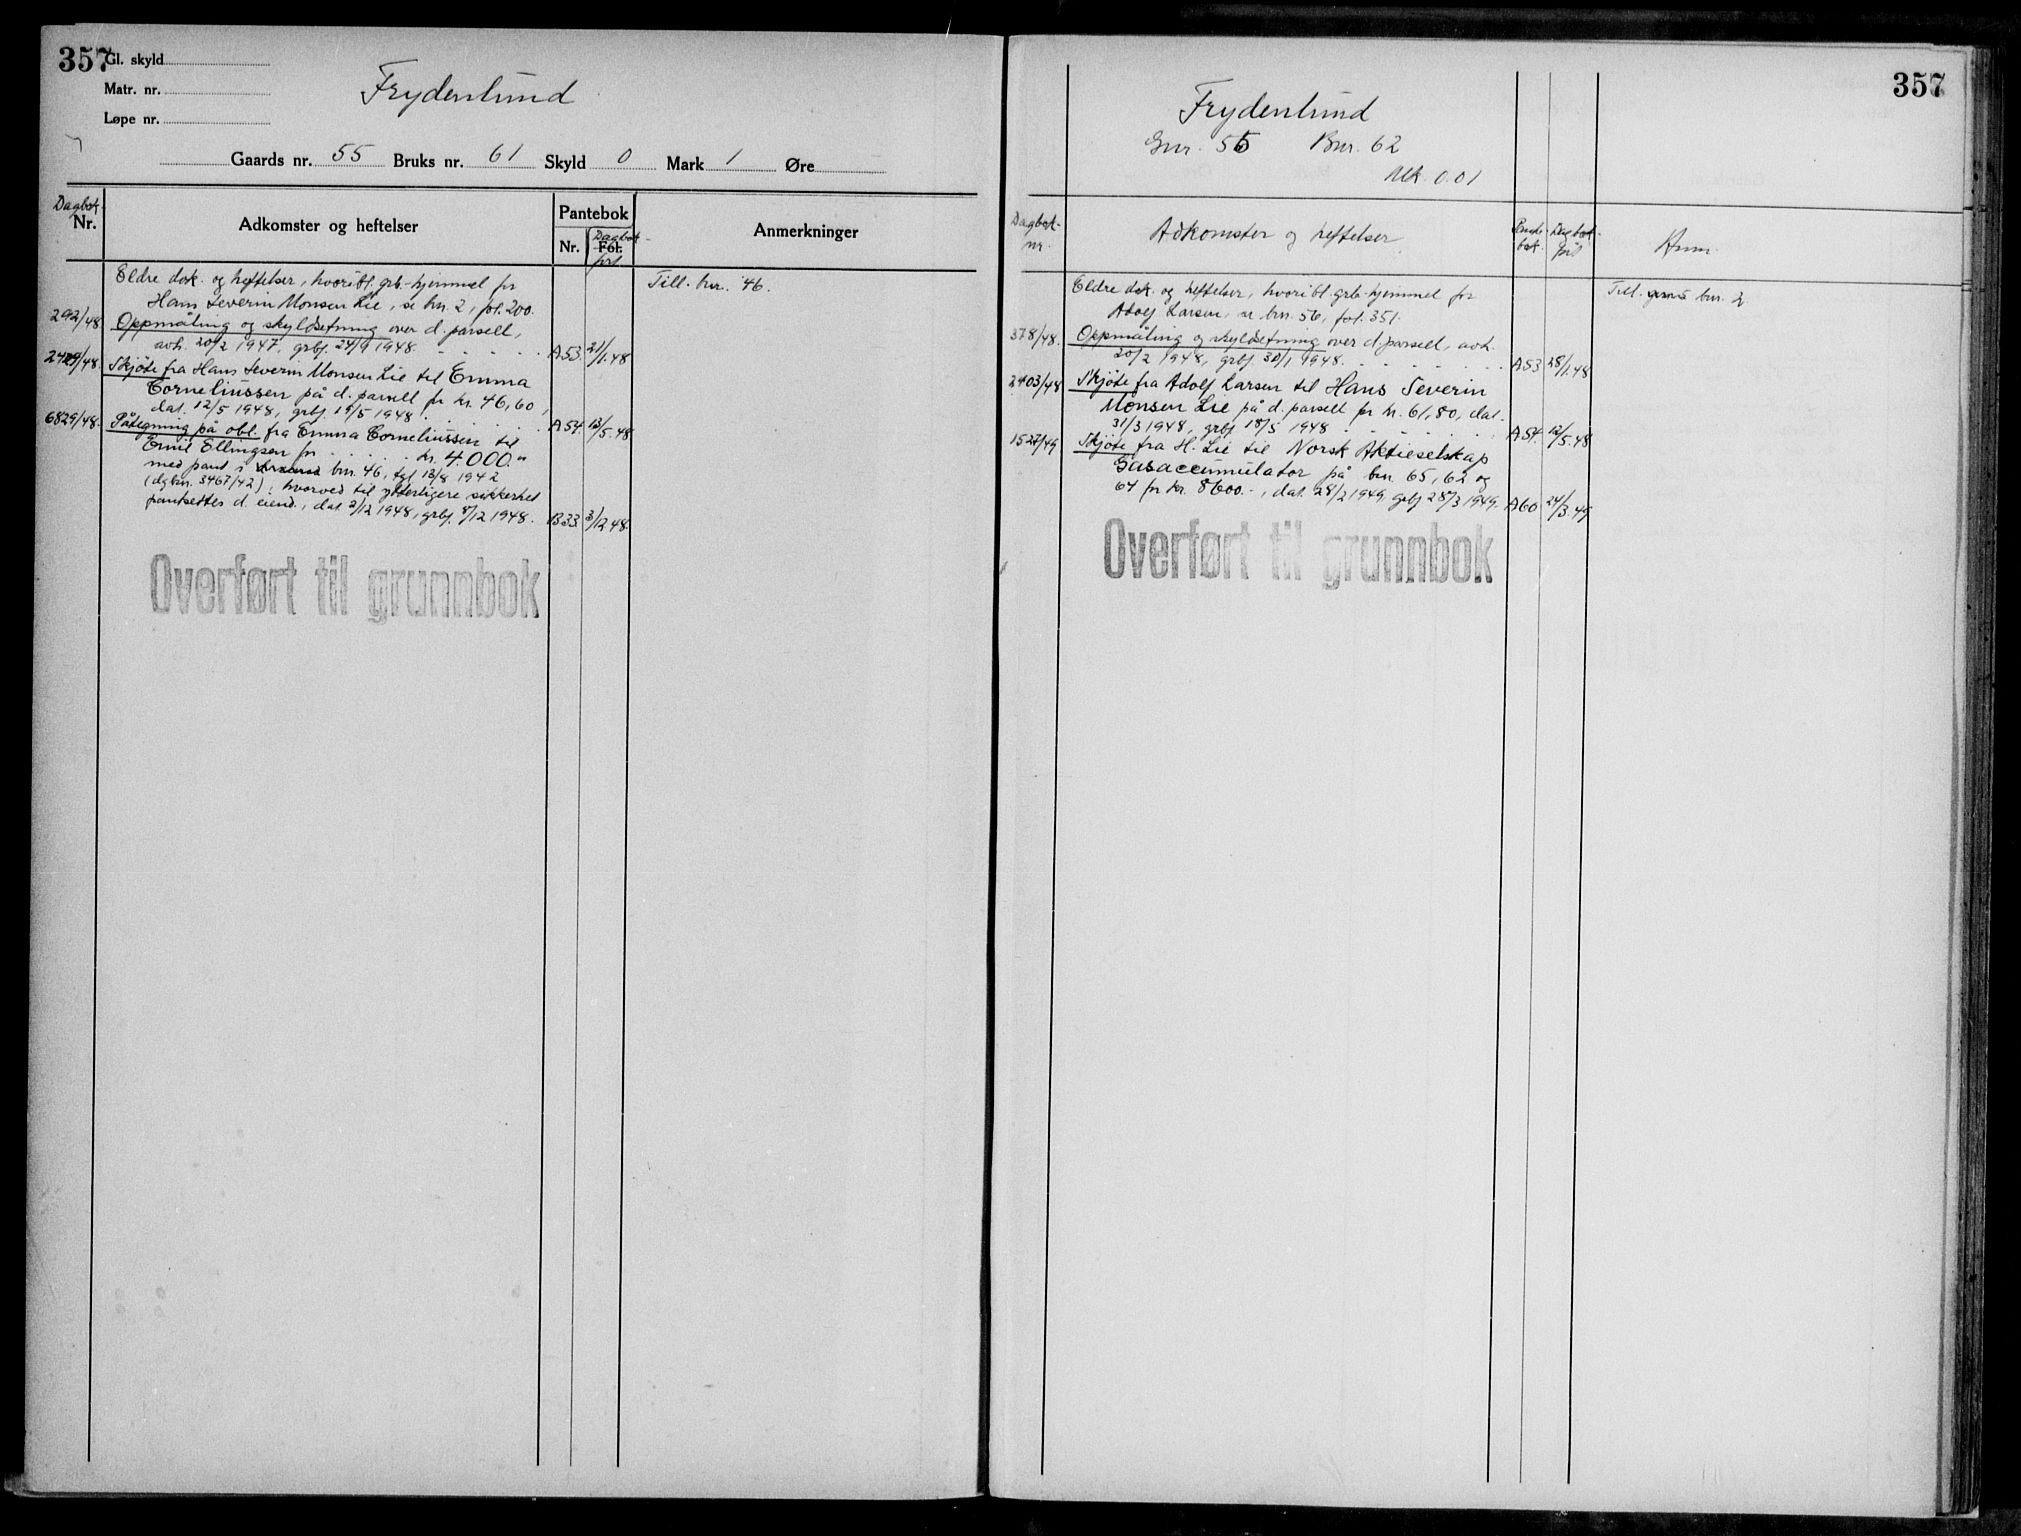 357
Gl. skyld
Matr. nr.
Løpe nr.
Frydenlund
Gaards nr. 55 Bruks nr. 61 Skyld 0 Mark 1 Øre
Dagbok-
Nr.
Adkomster og heftelser
Pantebok
Nr.
Dagbok-
Fol.
ført
Anmerkninger
Eldre dok. og heftelser, hvoribl. grb.-hjemmel for
Hans Severin Monsen Lie, se bnr. 2, fol. 200.
Till. bnr. 46.
292/48. Oppmåling og skyldsetning over d. parsell,
avh. 20/2 1947, grbj. 24/9 1948. A53. 21/1.48
/48. Skjöte fra Hans Severin Monsen Lie til Emma
Corneliussen på d. parsell for kr. 46,60,
dat. 12/5 1948, grbj. 19/5 1948. A54. 13/5.48
6829/48. Påtegning på obl. fra Emma Corneliussen til
Emil Ellingsen for kr. 4.000.-
med pant i bnr. 46, tgl. 13/8 1942
(dgbnr. 3467/42), hvorved til ytterligere sikkerhet
pantsettes d. eiend., dat. 2/12 1948, grbj. 8/12 1948. B33. 3/12.48.
Overført til grunnbok
357
Frydenlund
Gnr. 55 Bnr. 62
Mk. 0.01
Dagbok-
nr.
Adkomster og heftelser
Pante-
bok.
Dagbok-
ført
Anm.
Eldre dok. og heftelser, hvoribl. grb.-hjemmel for
Adolf Larsen, se bnr. 56, fol. 351.
Till. bnr. 2.
378/48. Oppmåling og skyldsetning over d. parsell, avh.
20/2 1948, grbj. 30/1 1948. A53 28/1.48
2403/48 Skjöte fra Adolf Larsen til Hans Severin
Monsen Lie på d. parsell for kr. 61,80, dat.
31/3 1948, grbj. 18/5 1948 A54. 12/5.48
1527/49 Skjöte fra H. Lie til Norsk Aktieselskap
Gasaccumulator på bnr. 65, 62 og
64 for kr. 8600.-, dat. 28/2 1949, grbj. 28/3 1949. A60 24/3.49
Overført til grunnbok